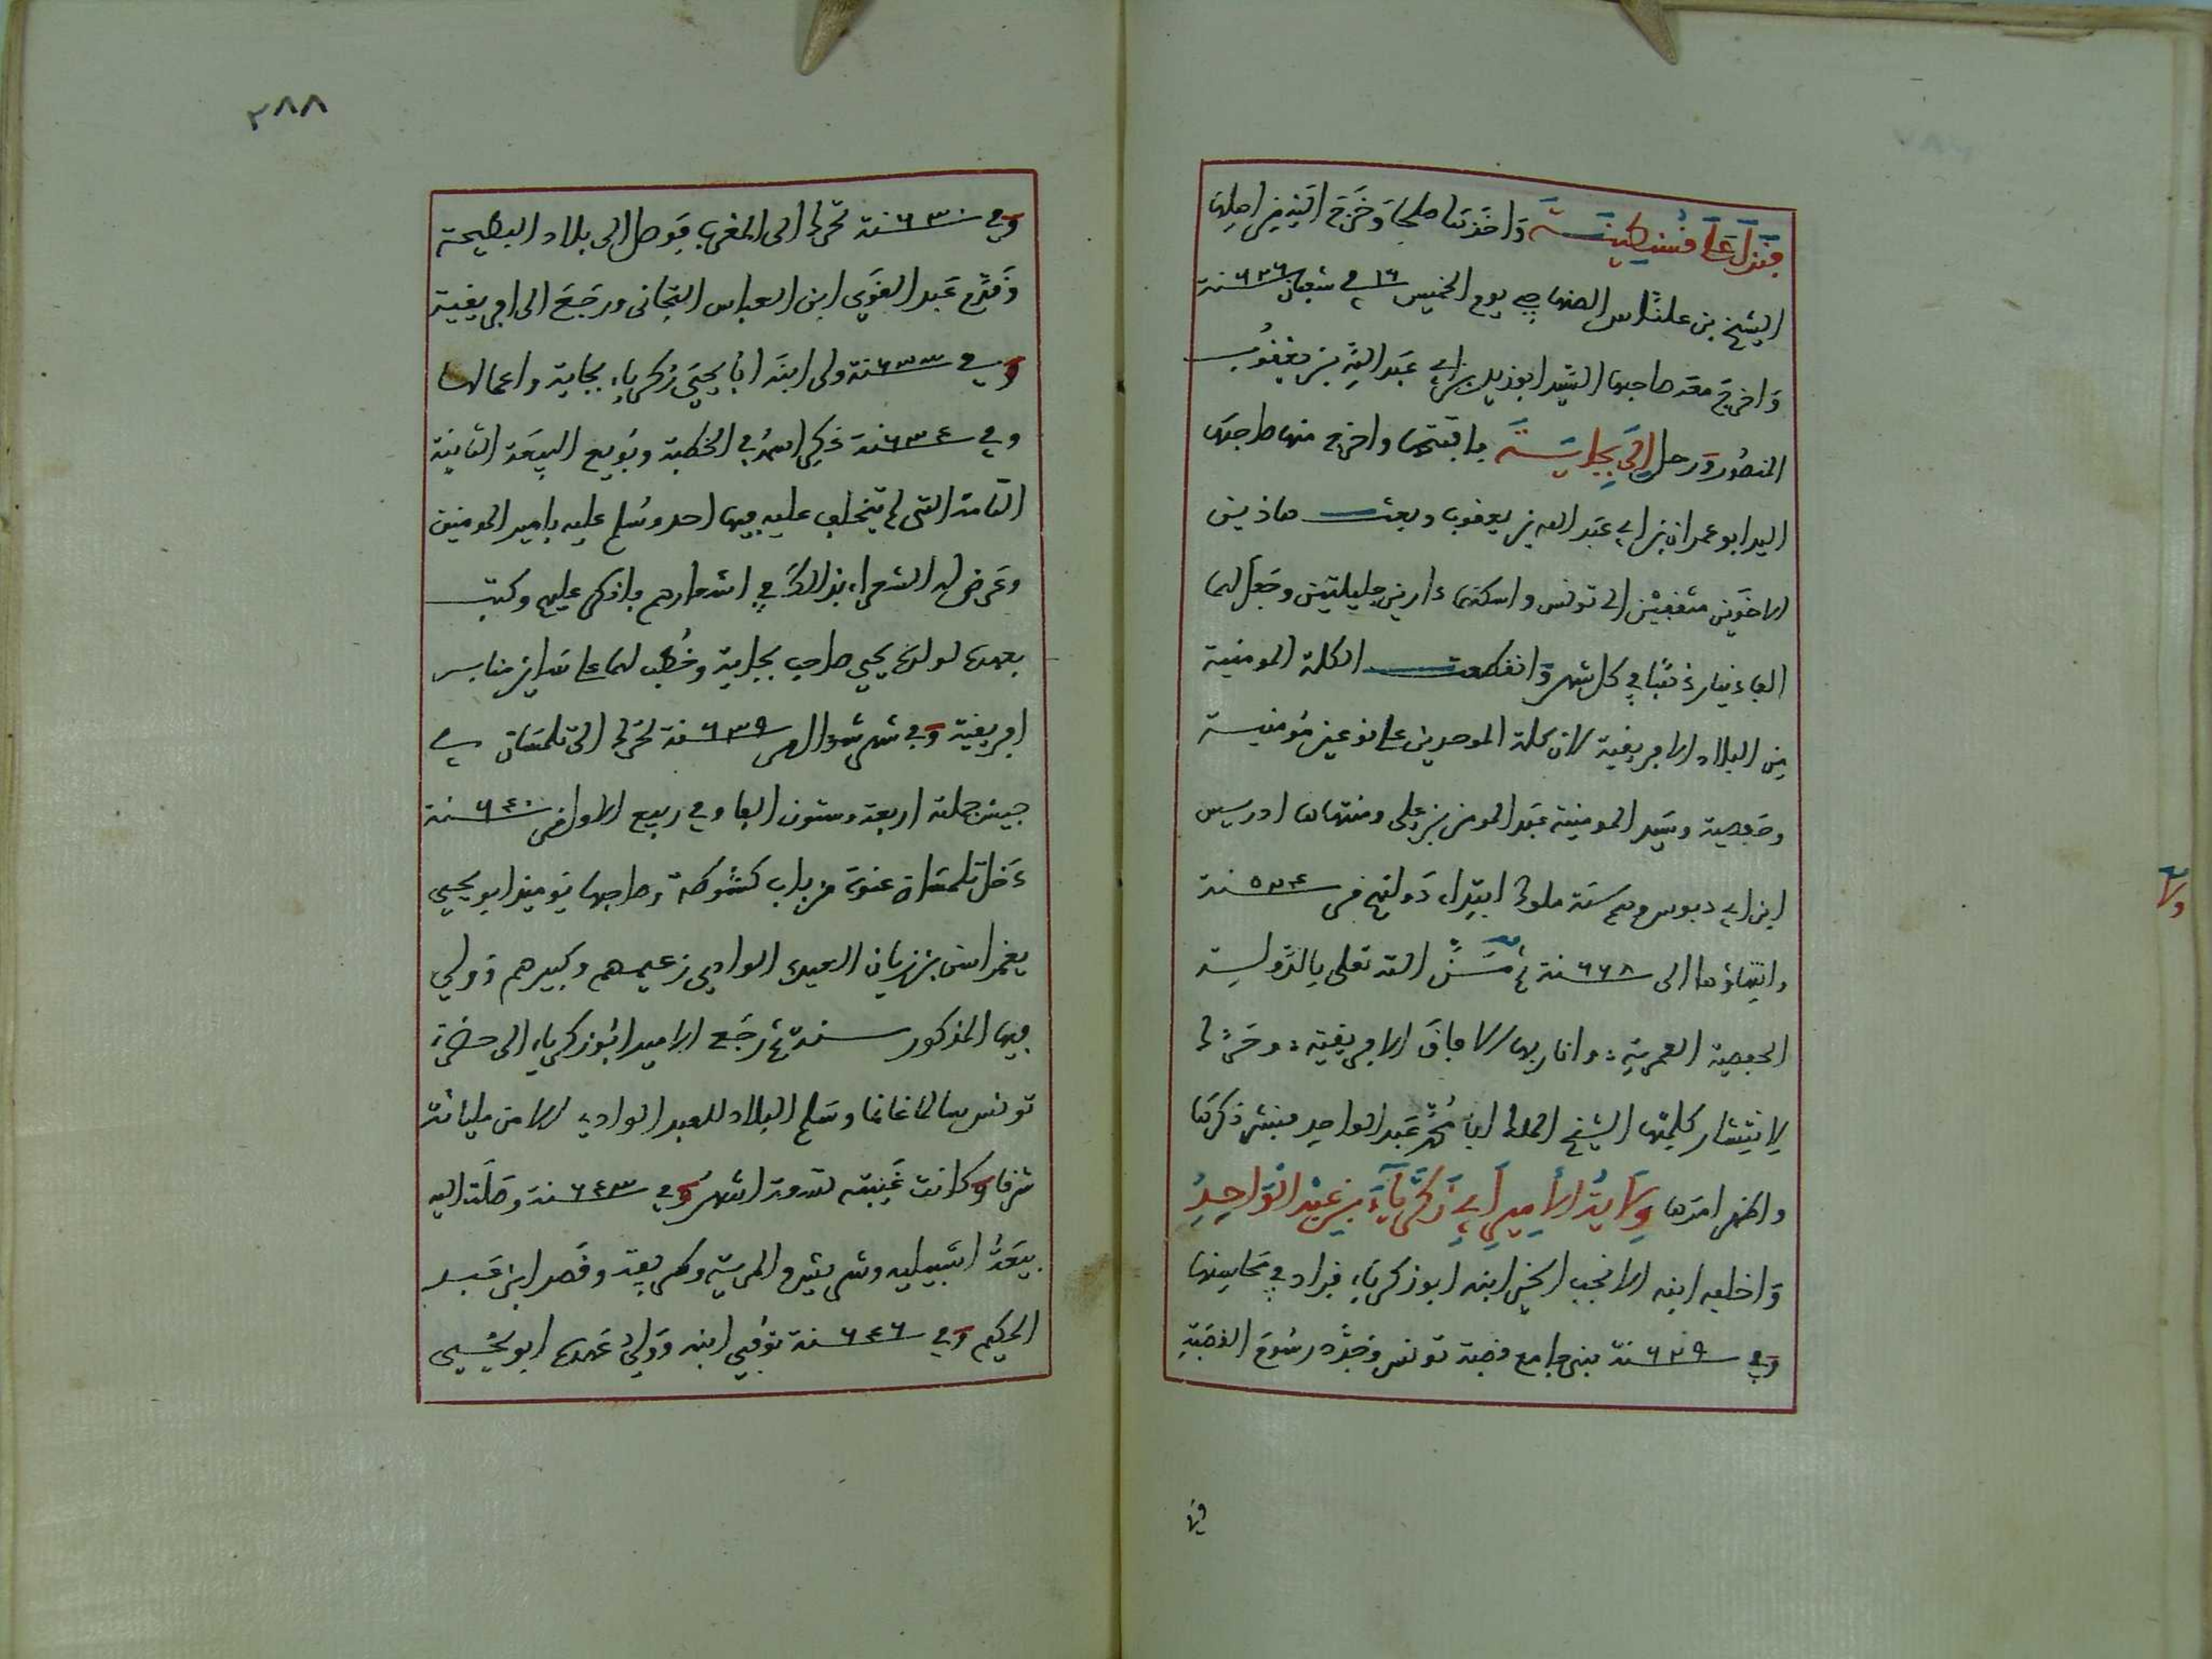 فنزل على قسنطينة واخذها صلحا وخرج اليه من اهلها
الشيخ بن علناس الصنهاجي يوم الخميس ١٦ في شعبان ٦٢٦سنة
واخرج معه صاحبها السيد ابو زيد بن ابي عبد الله بن يعقوب
المنصور ورحل الى بجاية فافتتحها واخرج منها صاحبها
السيد ابو عمران بن ابي عبد الله بن يعقوب وبعث هاذين
الاخوين مثقفين الى تونس واسكنهما دارين جليلتين وجعل لهما
الف دينار ذهبا في كل شهر وانقطعت الكلمة المومنية
من البلاد الافريقية لان كلمة الموحدين على نوعين مومنية
وحفصية وسيد المومنية عبد المومن بن علي ومنتهاها ادريس
ابن ابي دبوس وهم ستة ملوك ابتداء دولتهم في ٥٢٤سنة
وانتهاؤها الى ٦٦٨سنة ثم من الله تعلى بالدولة
الحفصية العمرية: وانار بها الافاق الافريقية: وحرك
لانتشار كلمتها الشيخ الملك ابا محمد عبد الواحد فبنشر ذكرها
واظهر امرها ولاية الامير ابي زكرياء بن عبد الواحد
واخلفه ابنه الانجب الخير ابنه ابو زكرياء فزاد في محاسنها
وفي ٦٢٩سنة بنى جامع قصبة تونس وجدد رسوم القصبة
وفي
ولا
٢٨٨
وفي ٦٣٠سنة تحرك الى المغرب فوصل الى بلاد البطيحة
وقدم عبد القوي ابن العباس التجاني ورجع الى افريقية
وفي ٦٣٣سنة ولى ابنه ابا يحيى زكرياء بجاية واعمالها
وفي ٦٣٤سنة ذكر اسمه في الخطبة وبويع البيعة الثانية
التامة التي لم يتخلف عليه فيها احد وسلم عليه بامير المومنين
وعرض له الشعراء بذالك في اشعارهم فانكر عليهم وكتب
بعهده لولده يحيى صاحب بجاية وخطب لهما على سائر منابر
افريقية وفي شهر شوال من ٦٣٩سنة تحرك الى تلمسان في
جيش جملته اربعة وستون الفا وفي ربيع الاول من ٦٤٠سنة
دخل تلمسان عنوة من باب كشوطة وصاحبها يومئذ ابو يحيى
يغمراسن بن زيان العبد الوادي زعيمهم وكبيرهم وولي
فيها المذكور سنة ثم رجع الامير ابو زكرياء الى حضرة
تونس سالما غانما وسلم البلاد للعبد الوادي الا من مليانة
شرقا وكانت غيبته تسعة اشهر وفي ٦٤٣سنة وصلت اليه
بيعة اشبيلية وشريش والمرية وطريف وقصر ابن عبد
الحكيم وفي ٦٤٦سنة توفي ابنه وولي عهده ابو يحيى